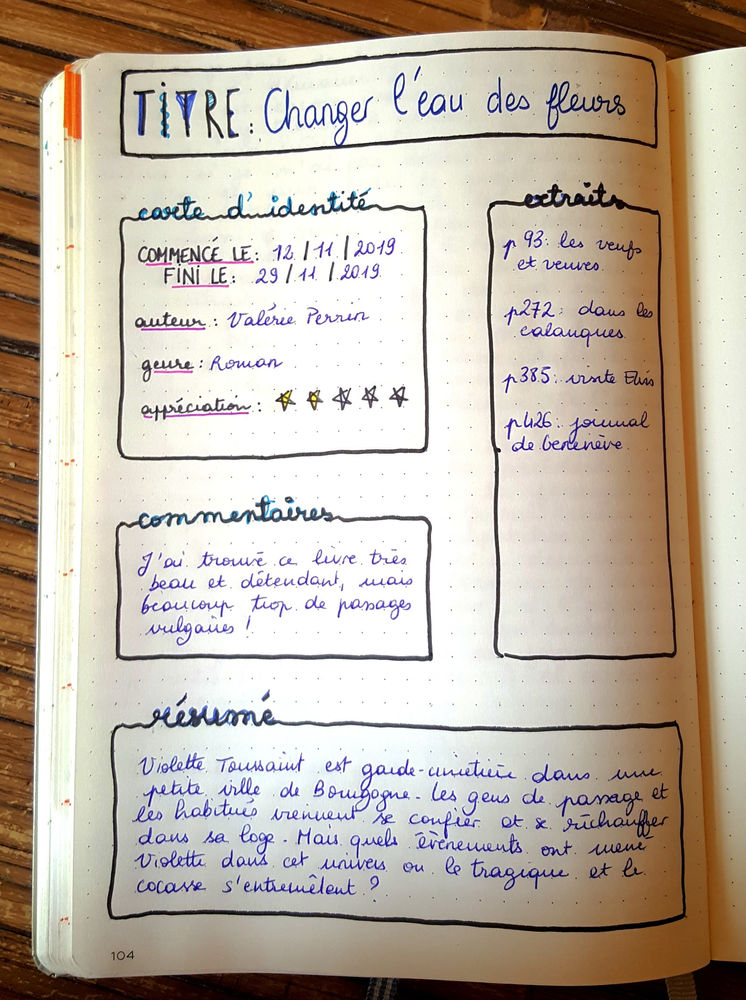 TITRE: Changer l'eau des fleurs
carte d'identité
COMMENCÉ LE: 12 / 11 / 2019
FINI LE: 29 / 11 / 2019
auteur : Valérie Perrin
genre : Roman
appréciation :
extraits
p 93: les veufs
et veuves
p272: dans les
calanques
p385: visite Elvis
p426: journal
de
commentaires
J'ai trouvé ce livre très
beau et détendant, mais
beaucoup trop de passages
vulgaires !
résumé
Violette Toussaint est garde-cimetière dans une
petite ville de Bourgogne. Les gens de passage et
les habitués viennent se confier et se réchauffer
dans sa loge. Mais quels évènements ont mené
Violette dans cet univers ou le tragique et le
cocasse s'entremêlent ?
104